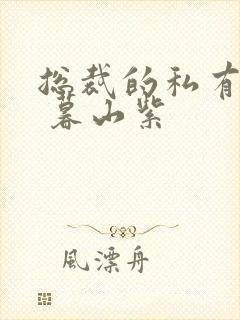 总裁的私有
暮山紫
風漂舟